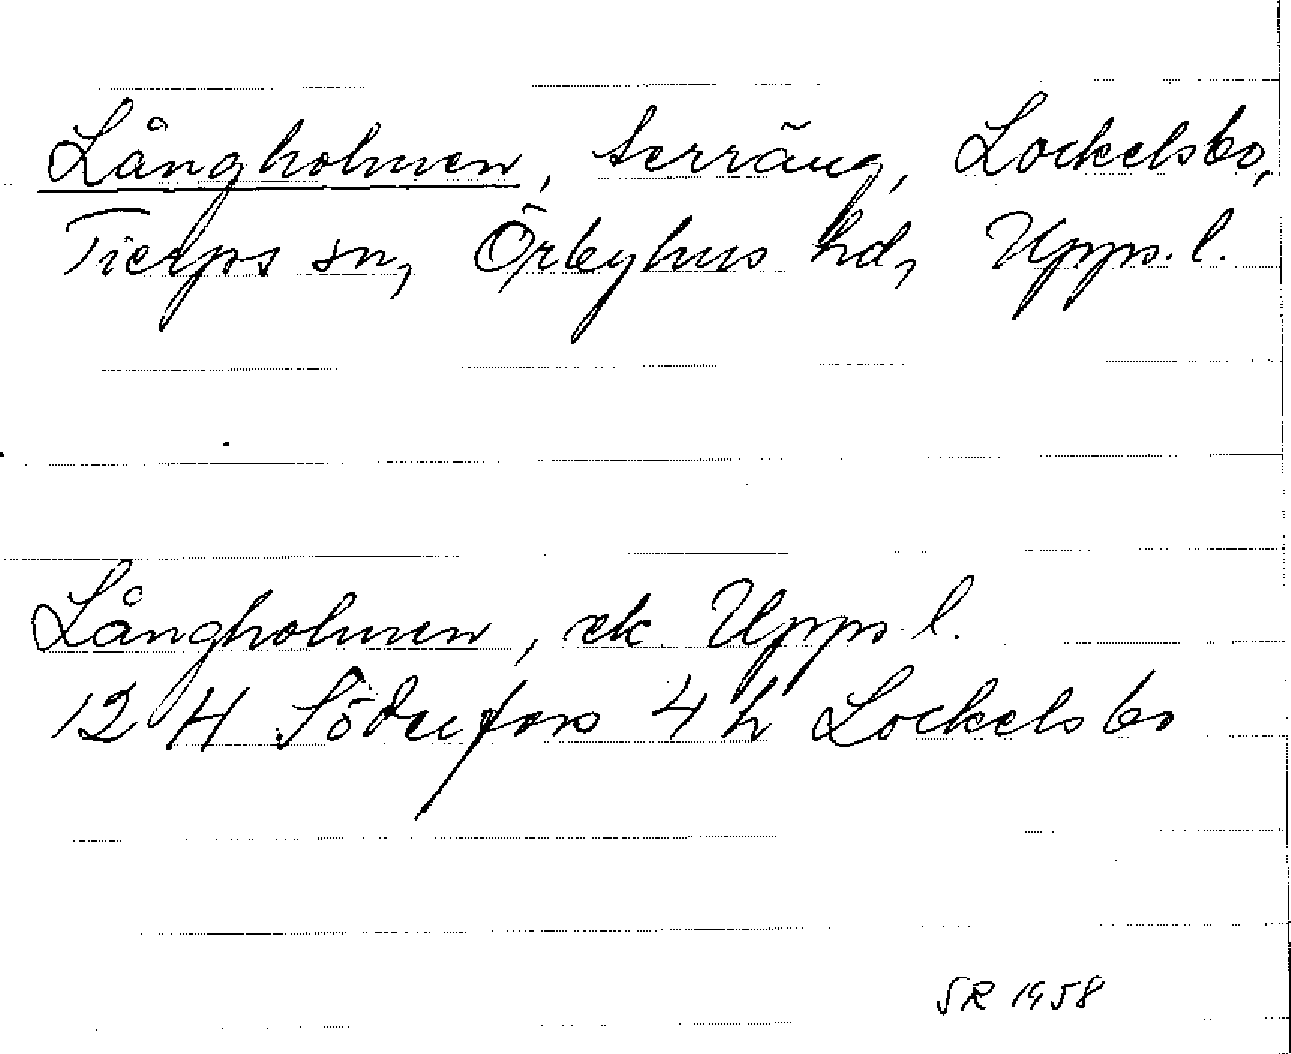 Långholmen, terräng, Lockelsbo,
Tierps sn, Örbyhus hd, Upps. l.
Långholmen, ek. Upps l.
12 H Söderfors 4 h Lockelsbo
SR 1958